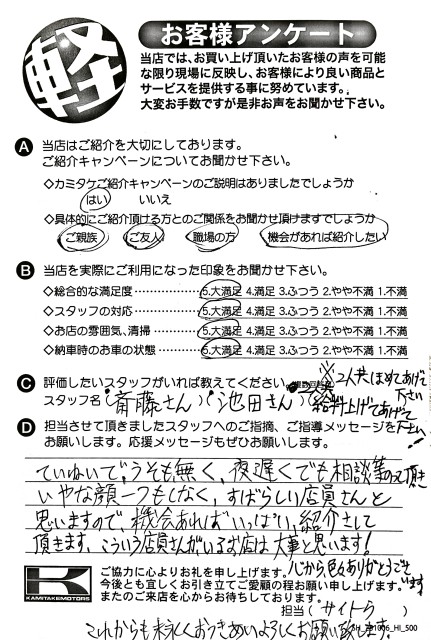 軽
お客様アンケート
当店では、お買い上げ頂いたお客様の声を可能
な限り現場に反映し、お客様により良い商品と
サービスを提供する事に努めています。
大変お手数ですが是非お声をお聞かせ下さい。
A 当店はご紹介を大切にしております。
ご紹介キャンペーンについてお聞かせ下さい。
◇カミタケご紹介キャンペーンのご説明はありましたでしょうか
はい いいえ
◇具体的にご紹介頂ける方とのご関係をお聞かせ頂けますでしょうか
ご親族 ご友人 職場の方 機会があれば紹介したい
B 当店を実際にご利用になった印象をお聞かせ下さい。
◇総合的な満足度 5.大満足 4.満足 3.ふつう 2.やや不満 1.不満
◇スタッフの対応 5.大満足 4.満足 3.ふつう 2.やや不満 1.不満
◇お店の雰囲気、清掃 5.大満足 4.満足 3.ふつう 2.やや不満 1.不満
◇納車時のお車の状態 5.大満足 4.満足 3.ふつう 2.やや不満 1.不満
C 評価したいスタッフがいれば教えてください。
※2人共ほめてあげて
下さい
スタッフ名 斎藤さん 池田さん
給料上げてあげて
下さい
D 担当させて頂きましたスタッフへのご指摘、ご指導メッセージを
お願いします。応援メッセージもぜひお願いします。
ていねいで、うそも無く、夜遅くでも相談等のって頂き
いやな顔一つもしなく、すばらしい店員さんと
思いますので、機会あればいっぱい紹介さして
頂きます、こういう店員さんがいるお店は大事と思います!
心から色々ありがとうござ
います
K
KAMITAKEMOTORS
ご協力に心よりお礼を申し上げます。
今後とも宜しくお引き立てご愛顧の程お願い申し上げます。
またのご来店を心からお待ちしております。
担当(サイトウ)
これからも末永くおつきあいよろしくお願い致します。